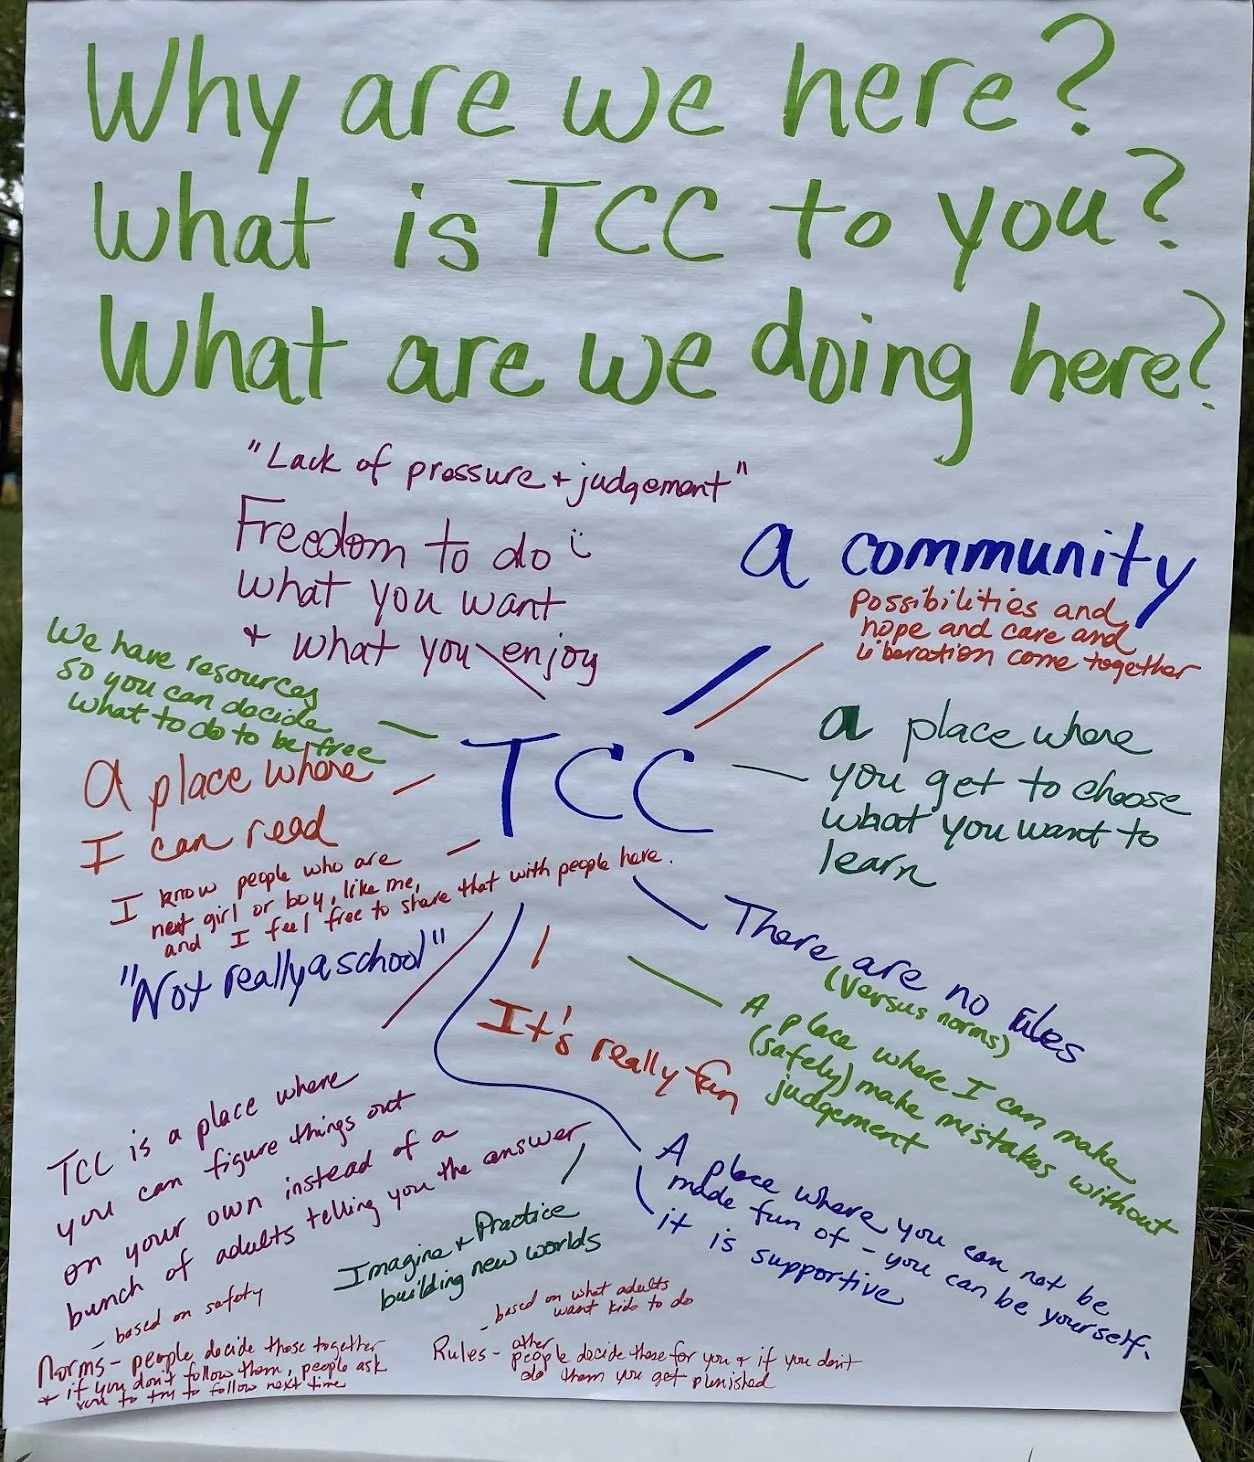 Why are we here?
What is TCC to you?
What are we doing here?
"Lack of pressure + judgement"
Freedom to do
what you want
+ what you enjoy
a community
Possibilities and
hope and care and
liberation come together
We have resources
so you can decide
what to do to be free
TCC
a place where
you get to choose
what you want to
learn
A place where
I can read
I know people who are
not girl or boy, like me,
and I feel free to share that with people here.
"Not really a school"
There are no rules
(versus norms)
A place where I can make
(safely) make mistakes without
judgement
It's really fun
TCC is a place where
you can figure things out
on your own instead of a
bunch of adults telling you the answer
A place where you can not be
made fun of - you can be yourself.
it is supportive
Imagine + Practice
building new worlds
- based on safety
Norms - people decide those together
+ if you don't follow them, people ask
you to try to follow next time
- based on what adults
want kids to do
Rules - other
people decide these for you + if you don't
do them you get punished